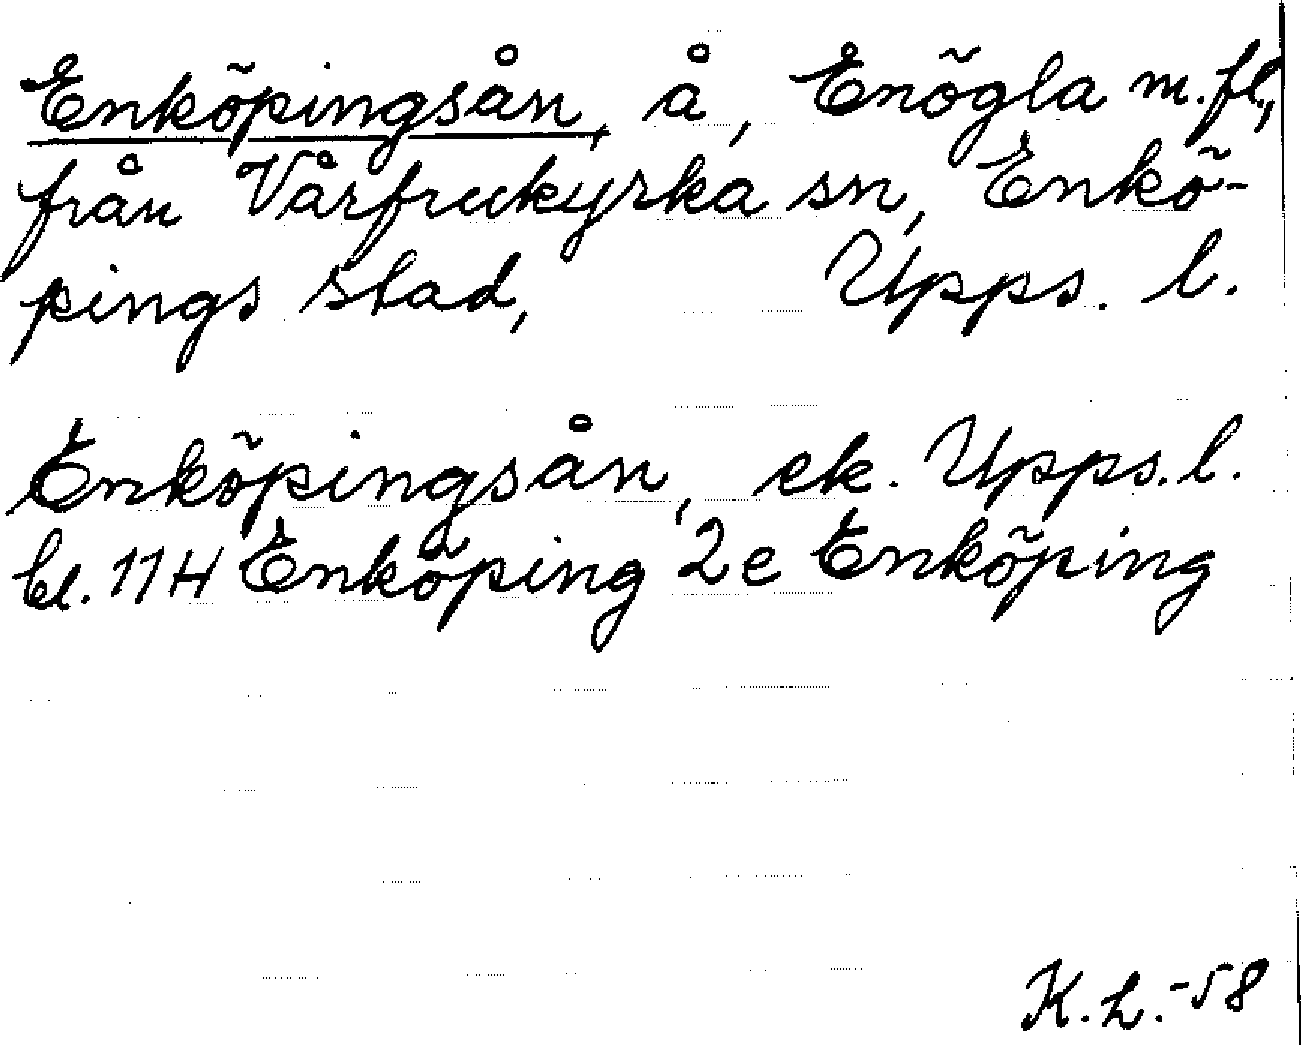 Enköpingsån, å, Enögla m.fl.,
från Vårfrukyrka sn, Enkö-
pings stad, Upps. l.
Enköpingsån, ek. Upps. l.
bl. 11H Enköping 2e Enköping
K.L.-58